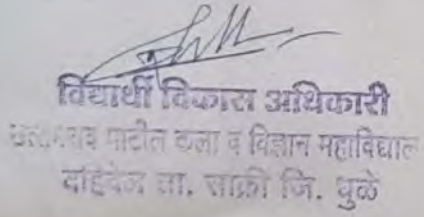 विद्यार्थी विकास अधिकारी
पाटील कला व विज्ञान महाविद्याल
दहिवेल ता. साक्री जि. धुळे